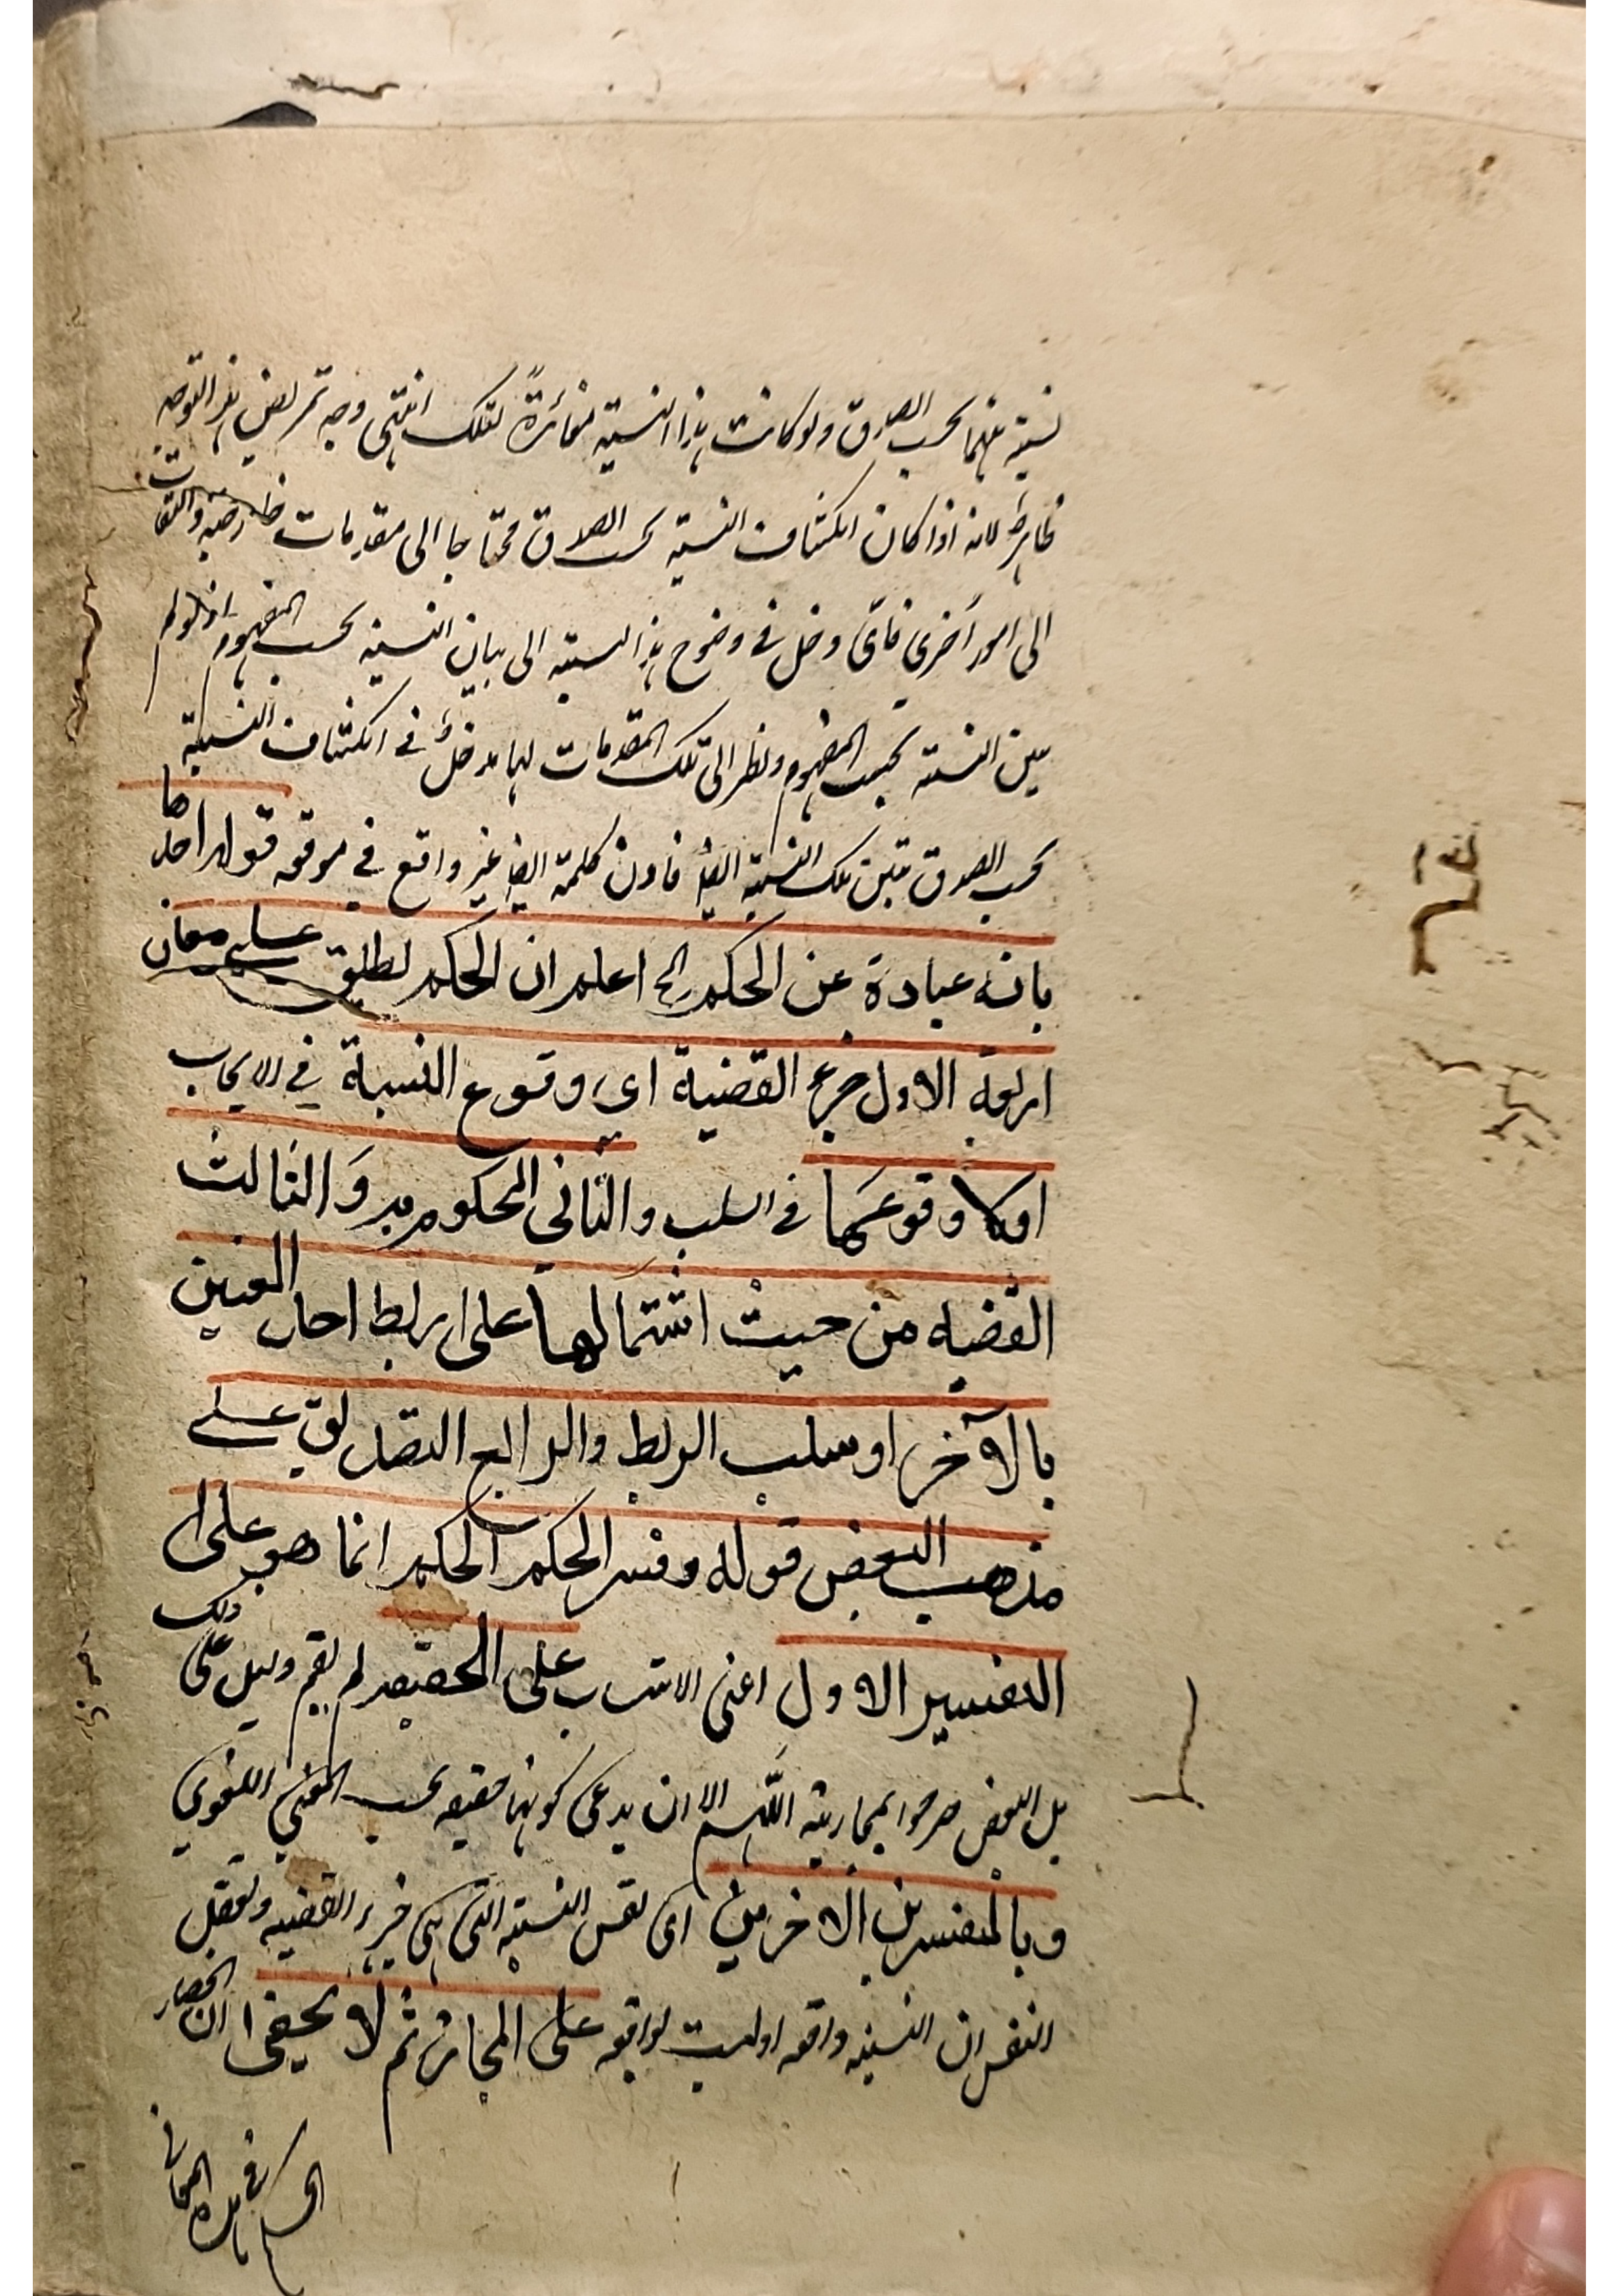 نسبة بينهما بحسب الصدق ولو كانت هذا النسبة مغائرةً لتلك انتهى وجه تمريض هذا التوجيه
ظاهر لانه اذا كان انكشاف النسبة بحسب الصدق محتاجا الى مقدمات خارجة والتفات
الى امور اخرى فاى دخل فى وضوح هذا النسبة الى بيان النسبة بحسب المفهوم اذ لو لم
يبين النسبة بحسب المفهوم ونظر الى تلك المقدمات لها مدخل فى انكشاف النسبة
بحسب الصدق يتبين تلك النسبة ايضا فاذن كلمة ايضا غير واقع فى موقعه قوله احدها
بانه عبارة عن الحكم الخ اعلم ان الحكم يطلق على معان
اربعة الاول جزء القضية اى وقوع النسبة فى الايجاب
اولا وقوعها فى السلب والثانى المحكوم به والثالث
القضيه من حيث اشتمالها على ربط احد المعنين
بالآخر او سلب الربط والرابع التصديق على
مذهب البعض قوله وفسر الحكم الحكم انما هو على
التفسير الاول اعنى الانتساب على الحقيقه لم يقم دليل على ذلك
بل البعض صرحوا بمجازيته اللهم الا ان يدعى كونهما حقيقه بحسب المعنى اللغوي
وبالتفسرين الاخرين اى نفس النسبة التى هى جزء القضيه وتعقل
النفس ان النسبه واقعه او ليست بواقعه على المجاز ثم لا يخفى ان انحصار
الحكم فى هذه المعانى